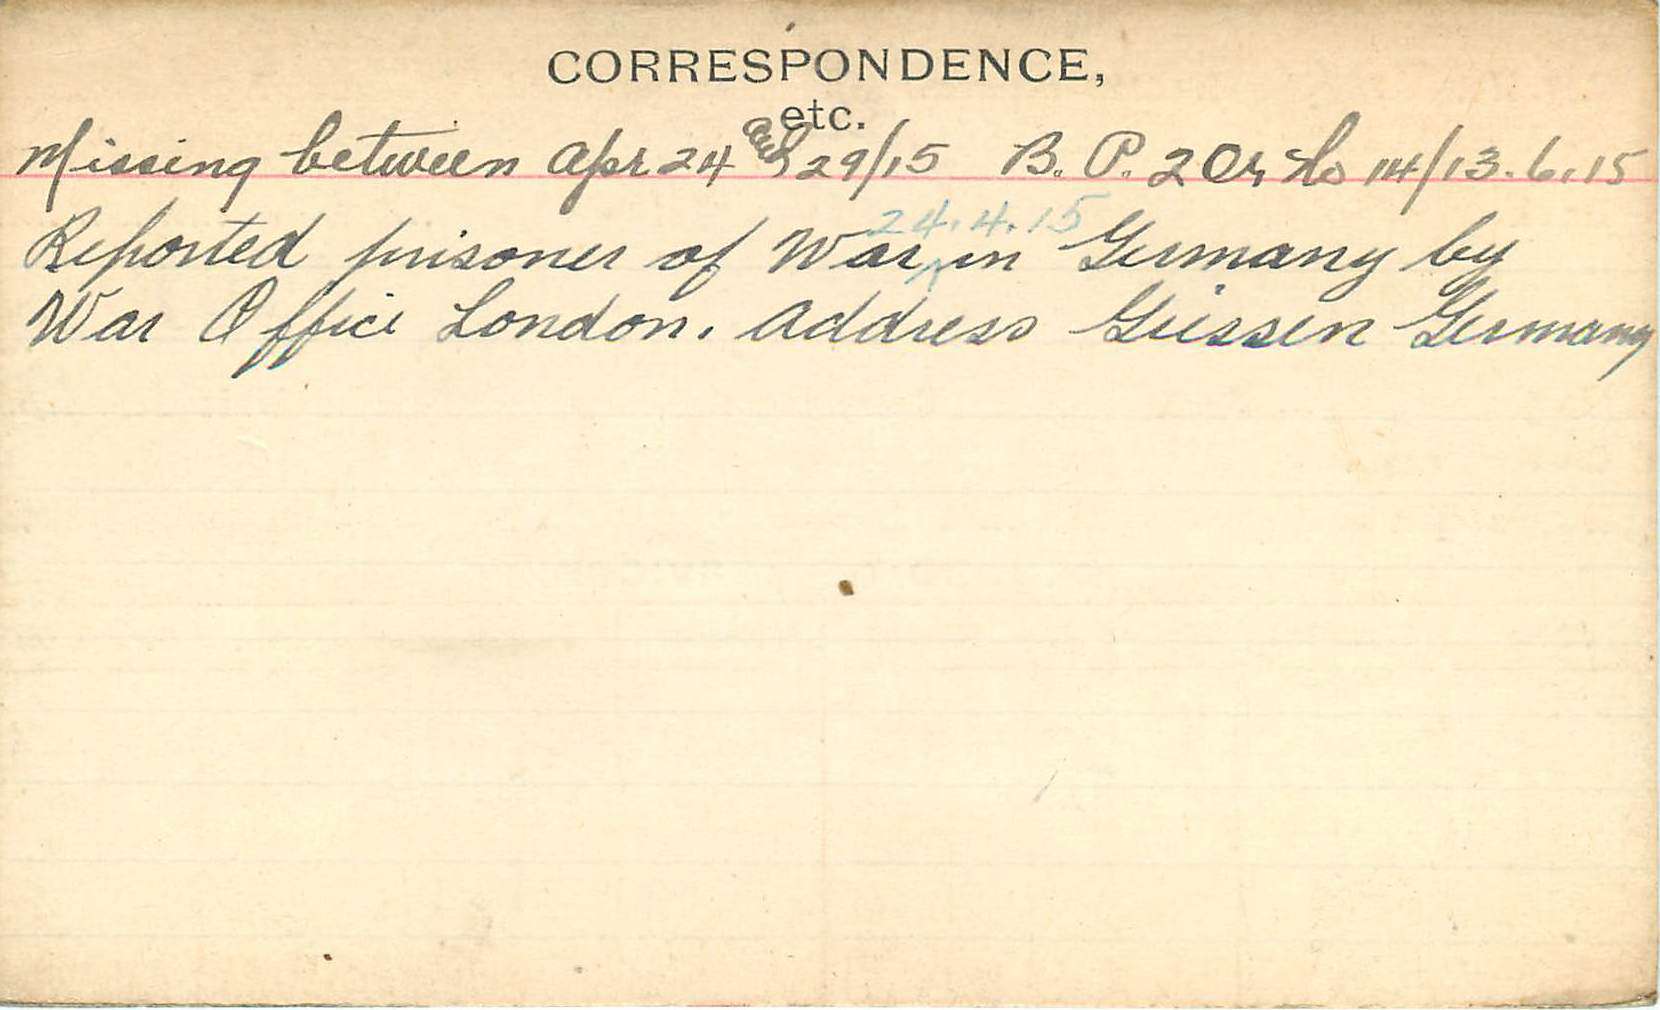 CORRESPONDENCE,
etc.
Missing between Apr 24 and 29/15 B. P. 2 Or Lo 14/13.6.15
24.4.15
Reported prisoner of War in Germany by
War Office London. Address Giessen Germany